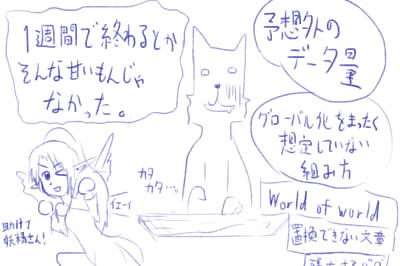 1週間で終わるとか
そんな甘いもんじゃ
なかった。
予想外の
データ量
グローバル化をまったく
想定していない
組み方
カタ
カタ…。
イエーイ
助けて
妖精さん!
World of world
置換できない文章